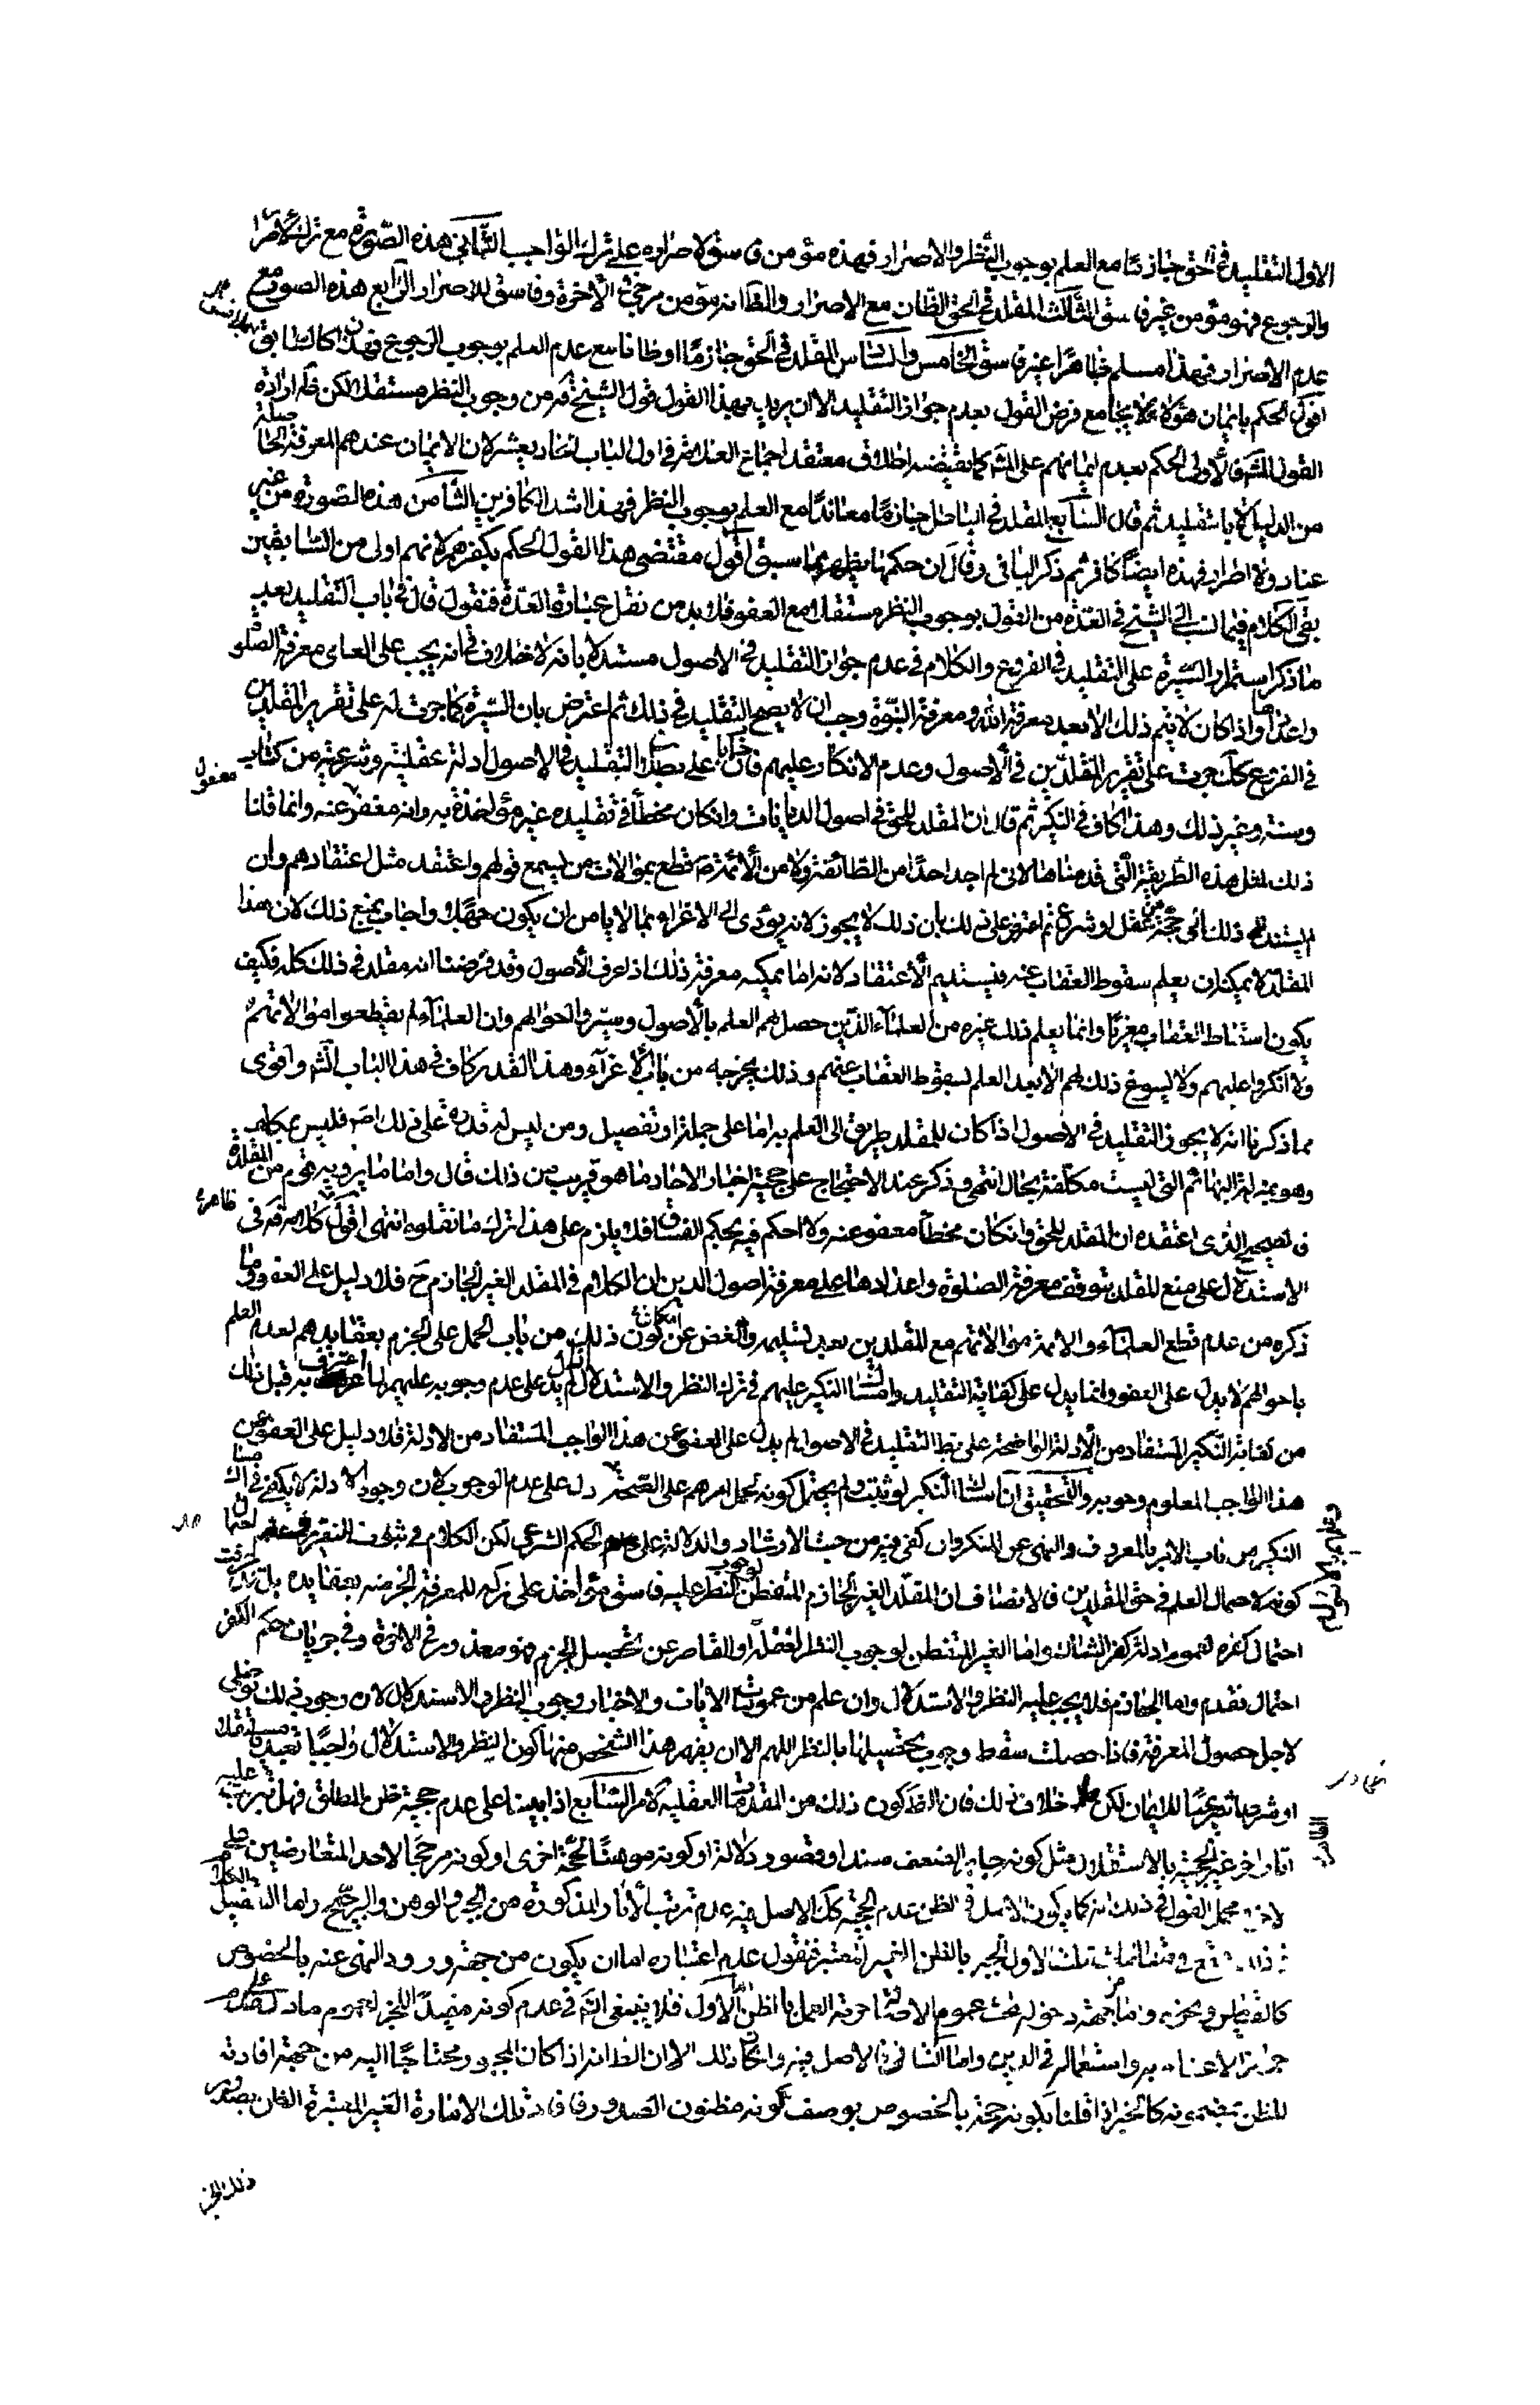 الاول التقليد في الحق جازما مع العلم بوجوب النظر والاصرار فهذه مؤمن فاسق لاصراره على ترك الواجب الثاني هذه الصورة مع ترك الاصرار
والرجوع فهو مؤمن غير فاسق الثالث المقلد في الحق الظان مع الاصرار والظاهر انه مؤمن مرجى في الآخرة وفاسق للاصرار الرابع هذه الصورة مع
عدم الاصرار فهذا مسلم ظاهرا غير فاسق الخامس والسادس المقلد في الحق جازما او ظانا مع عدم العلم بوجوب الرجوع فهذان كالسابق
اقول الحكم بايمان هؤلاء لا يجامع فرض القول بعدم جواز التقليد الا ان يريد بهذا القول قول الشيخ ره من وجوب النظر مستقلا لكن ظاهر ارادة
القول المشهور فالأولى الحكم بعدم ايمانهم على المشهور كما يقتضيه اطلاق معقد اجماع العلامة في اول الباب الحاديعشر لان الايمان عندهم المعرفة الحاصلة
من الدليل لا التقليد ثم قال السابع المقلد في الباطل جازما معاندا مع العلم بوجوب النظر فهذا اشد الكافرين الثامن هذه الصورة من غير
عناد ولا اصرار فهذه ايضا كافر ثم ذكر الباقي وقال ان حكمها يظهر مما سبق اقول مقتضى هذا القول الحكم بكفرهم لانهم اولى من السابقين
بقي الكلام فيما نسب الى الشيخ في العدة من القول بوجوب النظر مستقلا مع العفو فلا بد من نقل عبارة العدة فنقول قال في باب التقليد بعد
ما ذكر استمرار السيرة على التقليد في الفروع والكلام في عدم جواز التقليد في الاصول مستدلا بانه لا خلاف في انه يجب على العامي معرفة الصلوة
واعدادها واذا كان لا يتم ذلك الا بعد معرفة الله ومعرفة النبوة وجب ان لا يصح التقليد في ذلك ثم اعترض بان السيرة كما جرت على تقرير المقلدين
في الفروع كذلك جرت على تقرير المقلدين في الاصول وعدم الانكار عليهم فاجاب بان على بطلان التقليد في الاصول ادلة عقلية وشرعية من كتاب
وسنة وغير ذلك وهذا كاف في النكير ثم قال ان المقلد للحق في اصول الديانات وان كان مخطئا في تقليده غير مؤاخذ به وانه معفو عنه وانما قلنا
ذلك لمثل هذه الطريقة التي قدمناها لاني لم اجد احدا من الطائفة ولا من الائمة ع قطع موالات من يسمع قولهم واعتقد مثل اعتقادهم وان
لم يستند ذلك الى حجة من عقل او شرع ثم اعترض على ذلك بان ذلك لا يجوز لانه يؤدي الى الاغراء بما لا يامن ان يكون جهلا واجاب بمنع ذلك لان هذا
المقلد لا يمكنه ان يعلم سقوط العقاب عنه فيستديم الاعتقاد لانه انما يمكنه معرفة ذلك اذا عرف الاصول وقد فرضنا انه مقلد في ذلك كله فكيف
يكون اسقاط العقاب مغريا وانما يعلم ذلك غيره من العلماء الذين حصل لهم العلم بالأصول وسبروا احوالهم وان العلماء لم يقطعوا موالاتهم
ولا انكروا عليهم ولا يسوغ ذلك لهم الا بعد العلم لسقوط العقاب عنهم وذلك يخرجه من باب الاغراء وهذا القدر كاف في هذا الباب انشاء واقوى
مما ذكرنا انه لا يجوز التقليد في الاصول اذا كان للمقلد طريق الى العلم به اما على جملة او تفصيل ومن ليس له قدرة على ذلك اصلا فليس بمكلف
وهو بمنزلة البهائم التي ليست مكلفة بحال انتهى وذكر عند الاحتجاج على حجية اخبار الاحاد ما هو قريب من ذلك قال واما ما يرويه قوم من المقلدة
فالصحيح الذي اعتقده ان المقلد للحق وان كان مخطئا معفو عنه ولا احكم فيه بحكم الفساق فلا يلزم على هذا ترك ما نقلوه انتهى اقول ظاهر كلامه ره في
الاستدلال على منع التقليد بتوقف معرفة الصلوة واعدادها على معرفة اصول الدين ان الكلام في المقلد الغير الجازم وح فلا دليل على العفو وما
ذكره من عدم قطع العلماء والائمة موالاتهم مع المقلدين بعد تسليمه والغض عن امكان كون ذلك من باب الحمل على الجزم بعقايدهم لعدم العلم
باحوالهم لا يدل على العفو وانما يدل على كفاية التقليد وامساك النكير عليهم في ترك النظر والاستدلال اذا لم يدل على عدم وجوبه عليهم لما اعترف به قبل ذلك
من كفاية النكير المستفاد من الأدلة الواضحة على بطلان التقليد في الاصول لم يدل على العفو عن هذا الواجب المستفاد من الادلة فلا دليل على العفو عن
هذا الواجب المعلوم وجوبه والتحقيق ان امساك النكير لو ثبت ولم يحتمل كونه لحمل امرهم على الصحة دل على عدم الوجوب لان وجود الادلة لا يكفي في امساك
النكير من باب الامر بالمعروف والنهي عن المنكر وان كفى فيه من حيث الارشاد والدلالة على الحكم الشرعي لكن الكلام في ثبوت التقرير وعدم احتمال
كونه لاحتمال العلم في حق المقلدين فالانصاف ان المقلد الغير الجازم المتفطن لوجوب النظر عليه فاسق مؤاخذ على تركه للمعرفة الجزمية بعقايده بل قد عرفت
احتمال كفره لعموم ادلة كفر الشاك واما الغير المتفطن لوجوب النظر لغفلة او القاصر عن تحصيل الجزم فهو معذور في الاخرة وفي جريان حكم الكفر
احتمال تقدم واما الجازم فلا يجب عليه النظر والاستدلال وان علم من عمومات الايات والاخبار وجوب النظر والاستدلال لان وجوب ذلك توصلي
لاجل حصول المعرفة فاذا حصلت سقط وجوب تحصيلها بالنظر اللهم الا ان يفهم هذا الشخص منها كون النظر والاستدلال واجبا تعبديا مستقلا
او شرطا شرعيا للايمان لكن خلاف ذلك فان الظاهر كون ذلك من المقدمات العقلية الامر السابع اذا بنينا على عدم حجية ظن المطلق فهل يترتب عليه
اثار اخر غير الحجية بالاستقلال مثل كونه جابرا لضعف سند او قصور دلالة او كونه موهنا لحجة اخرى او كونه مرجحا لاحد المتعارضين على
الاخر ومجمل القول في ذلك انه كما يكون الاصل في الظن عدم الحجية كذلك الاصل فيه عدم ترتب الاثار المذكورة من الجبر والوهن والترجيح واما الكلام التفصيل
في ذلك فيقع في مقامات ثلث الاول الجبر بالظن الغير المعتبر فنقول عدم اعتباره اما ان يكون من جهة ورود النهي عنه بالخصوص
كالقياس ونحوه واما من جهة دخوله تحت عموم الاصل حرمة العمل بالظن اما الاول فلا ينبغي التأمل في عدم كونه مفيدا للجبر لعموم ما دل على عدم
جواز الاعتناء به واستعماله في الدين واما الثاني فالاصل فيه وان كان ذلك الا ان الظاهر انه اذا كان المجبور محتاجا اليه من جهة افادته
للظن بمضمونه كالخبر اذا قلنا بكونه حجة بالخصوص بوصف كونه مظنون الصدور فافاد تلك الامارة الغير المعتبرة الظن بصدور
ذلك الخبر